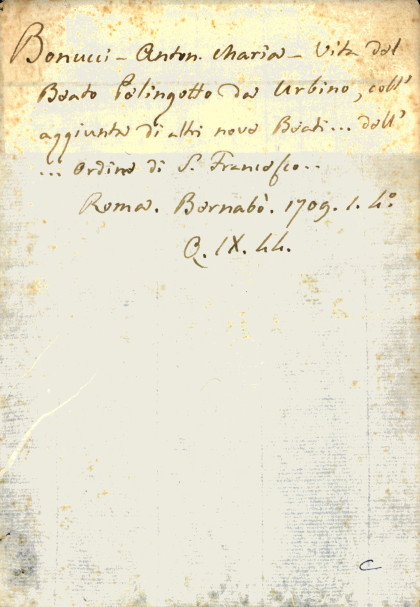 Bonucci - Anton. Maria - Vita del
Beato Pelingotto da Urbino, coll'
aggiunta di altri nove Beati... dell'
... Ordine di S. Francesco..
Roma. Bernabò. 1709. 1. 4.º
Q. IX. 44.
C